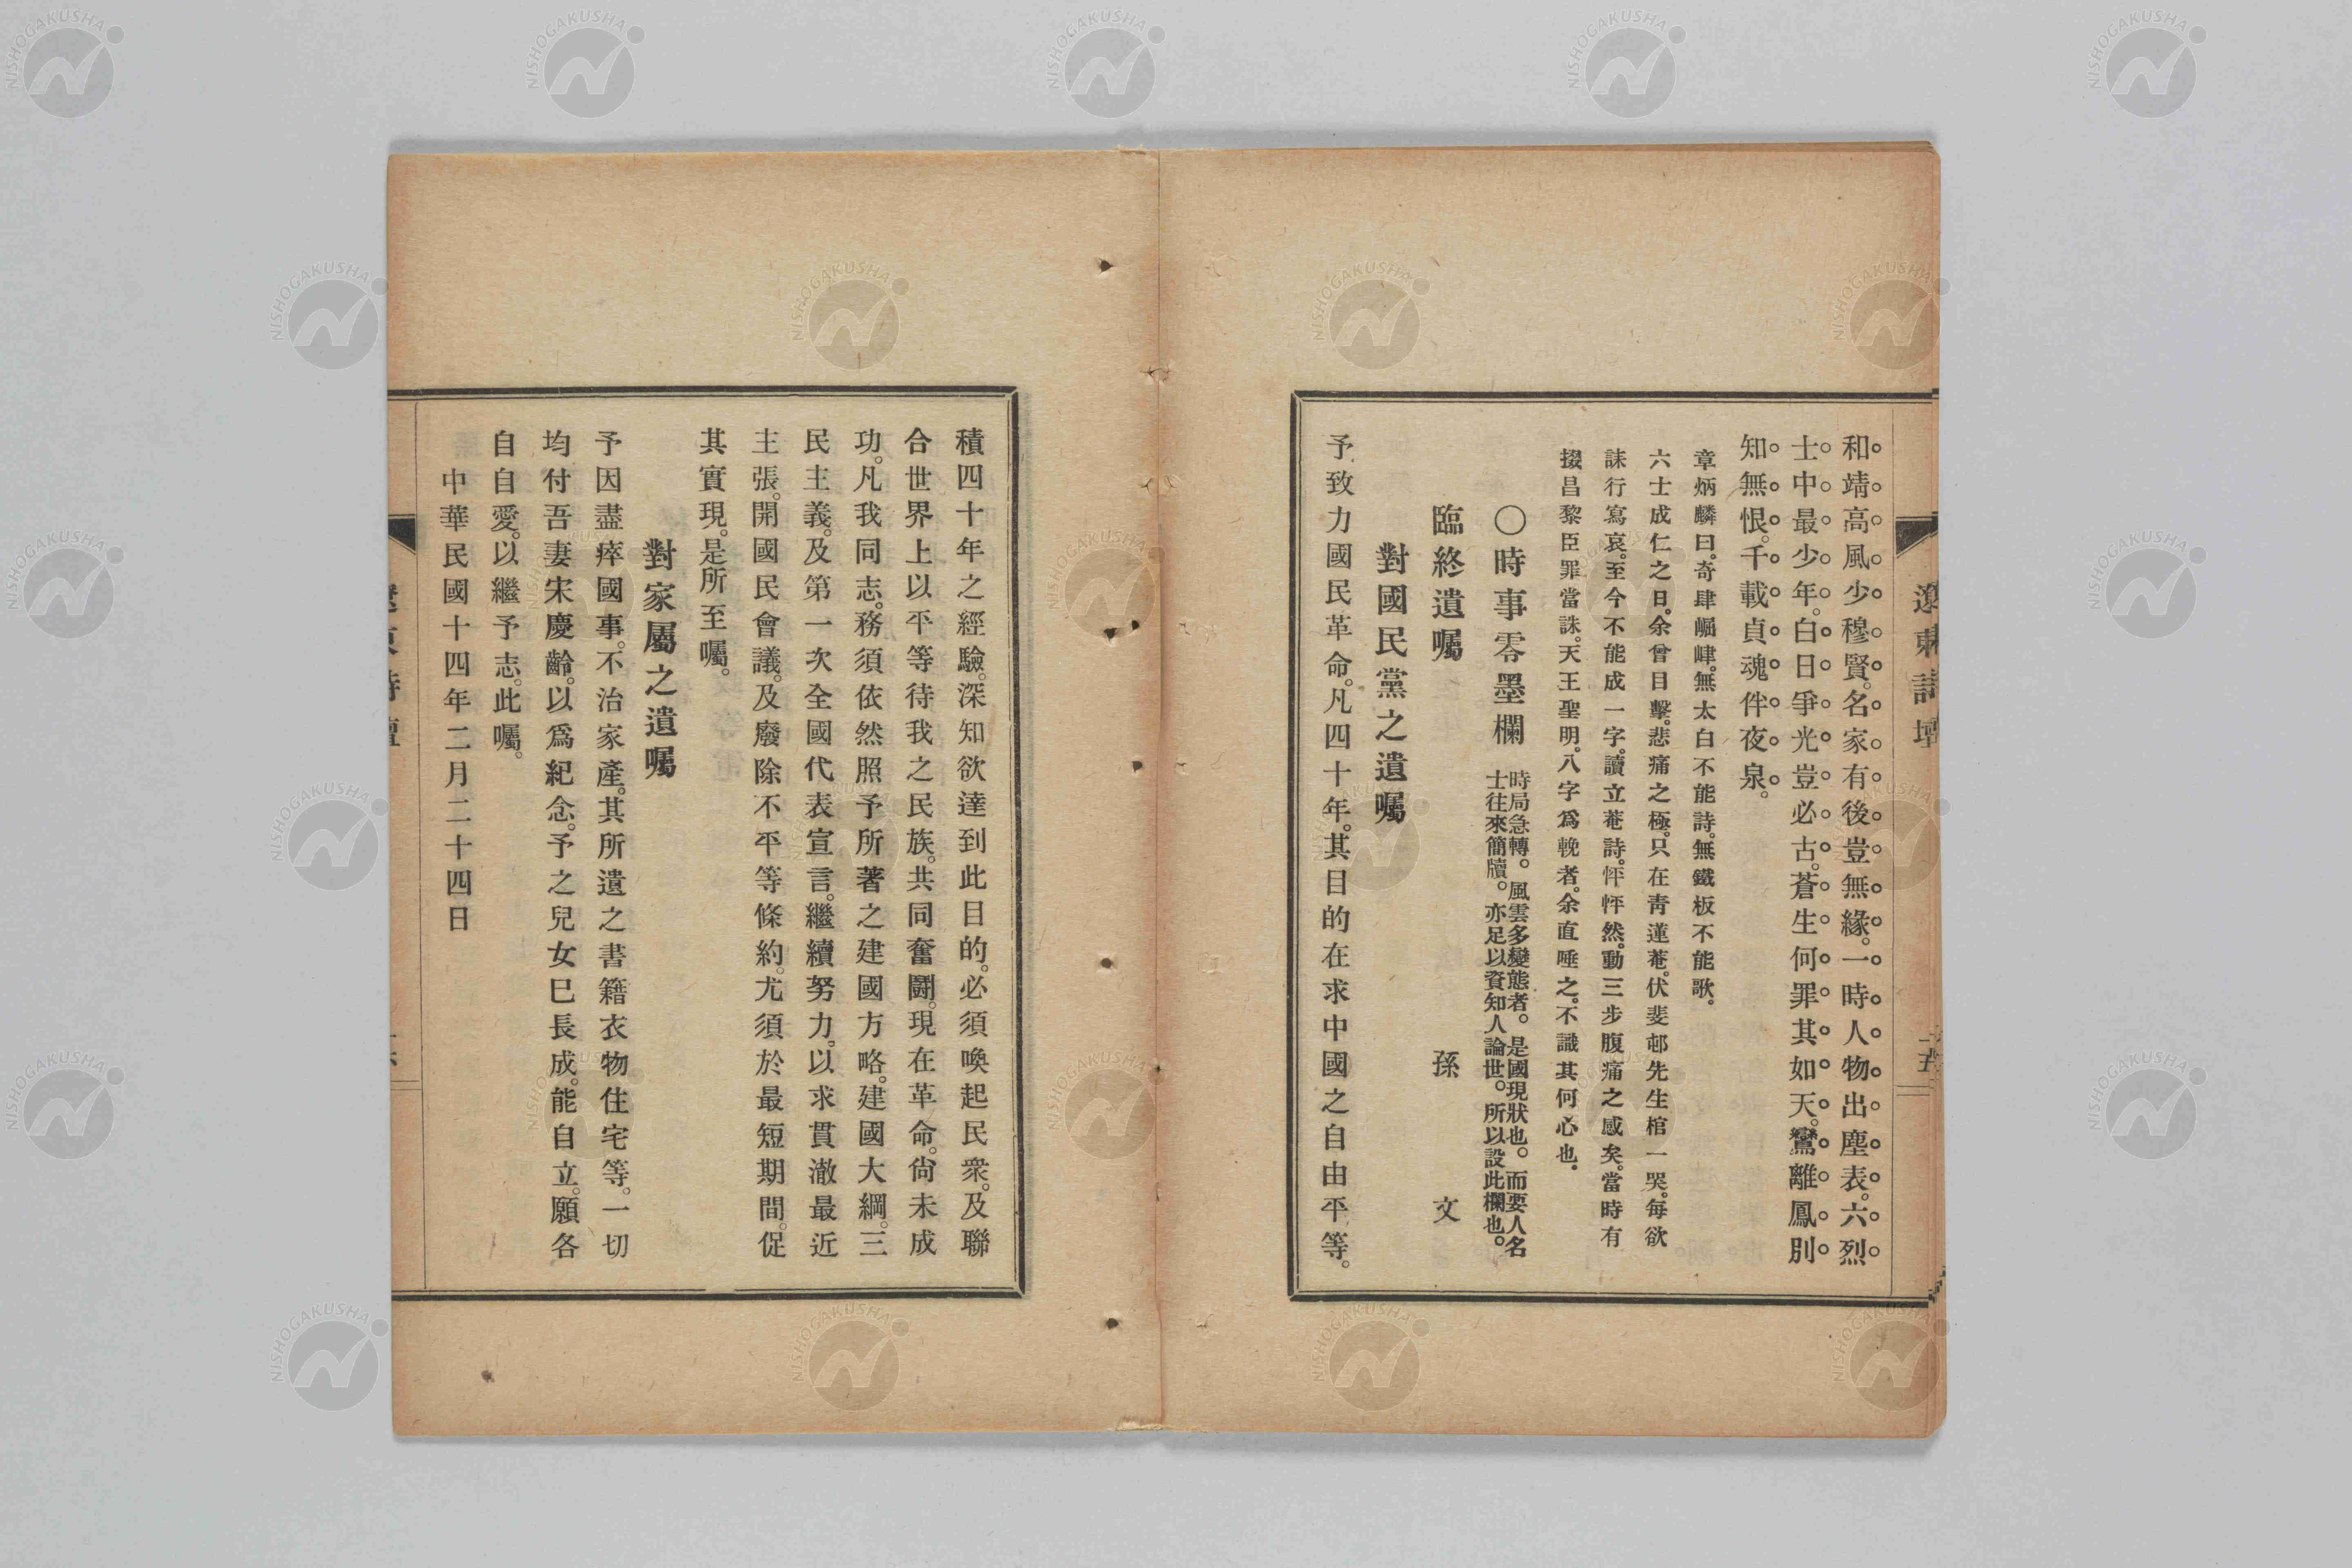 和靖高風少穆賢。名家有後豈無緣。一時人物出塵表。六烈
士中最少年。白日爭光豈必古。蒼生何罪其如天。鸞離鳳別
知無恨。千載貞魂伴夜泉。
章炳麟曰。奇肆崛峍。無太白不能詩。無鐵板不能歌。
六士成仁之日。余曾目擊。悲痛之極。只在青蓮菴。伏斐邨先生棺一哭。每欲
誄行寫哀。至今不能成一字。讀立菴詩。怦怦然。動三步腹痛之感矣。當時有
掇昌黎臣罪當誅。天王聖明。八字爲輓者。余直唾之。不識其何心也。
〇時事零墨欄
時局急轉。風雲多變態者。是國現狀也。而要人名
士往來簡牘。亦足以資知人論世。所以設此欄也。
臨終遺囑 孫 文
對國民黨之遺囑
予致力國民革命。凡四十年。其目的在求中國之自由平等。
積四十年之經驗。深知欲達到此目的。必須喚起民衆。及聯
合世界上以平等待我之民族。共同奮鬪。現在革命。尙未成
功。凡我同志。務須依然照予所著之建國方略。建國大綱。三
民主義。及第一次全國代表宣言。繼續努力。以求貫澈最近
主張。開國民會議。及廢除不平等條約。尤須於最短期間。促
其實現。是所至囑。
對家屬之遺囑
予因盡瘁國事。不治家產。其所遺之書籍衣物住宅等。一切
均付吾妻宋慶齡。以爲紀念。予之兒女巳長成。能自立。願各
自自愛。以繼予志。此囑。
中華民國十四年二月二十四日